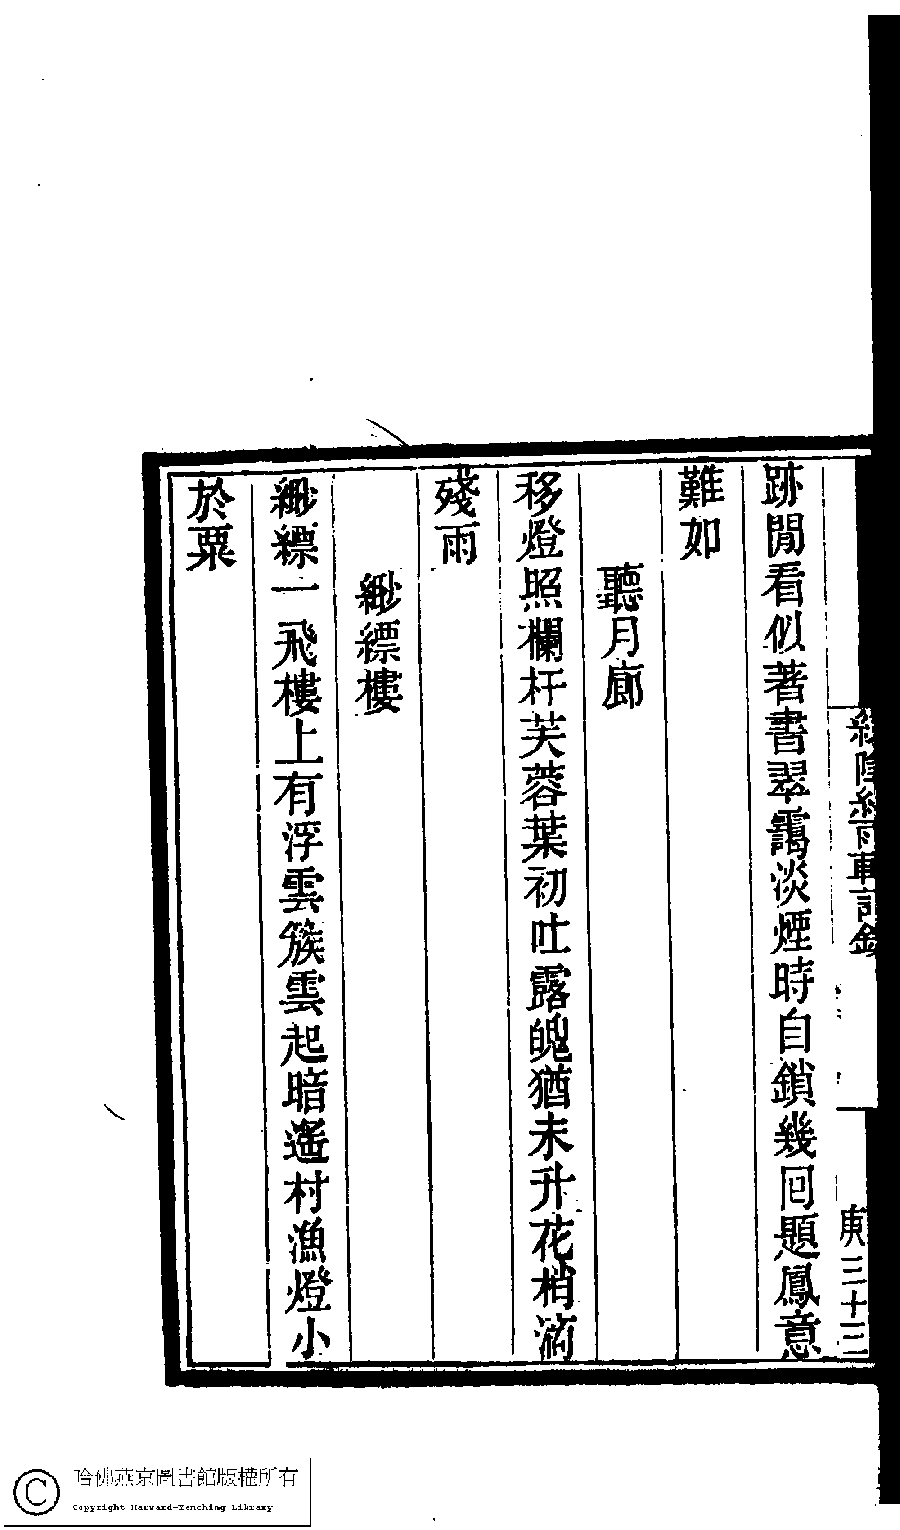 跡閒看似著書翠靄淡煙時自鎖幾回題鳳意
難如
聽月廊
移燈照欄杆芙蓉葉初吐露魄猶未升花梢滴
殘雨
緲縹樓
緲縹一飛樓上有浮雲簇雲起暗遙村漁燈小
於粟
綠陰紅雨軒詩鈔
庚三十三
哈佛燕京圖書館版權所有
Copyright Harvard-Yenching Library